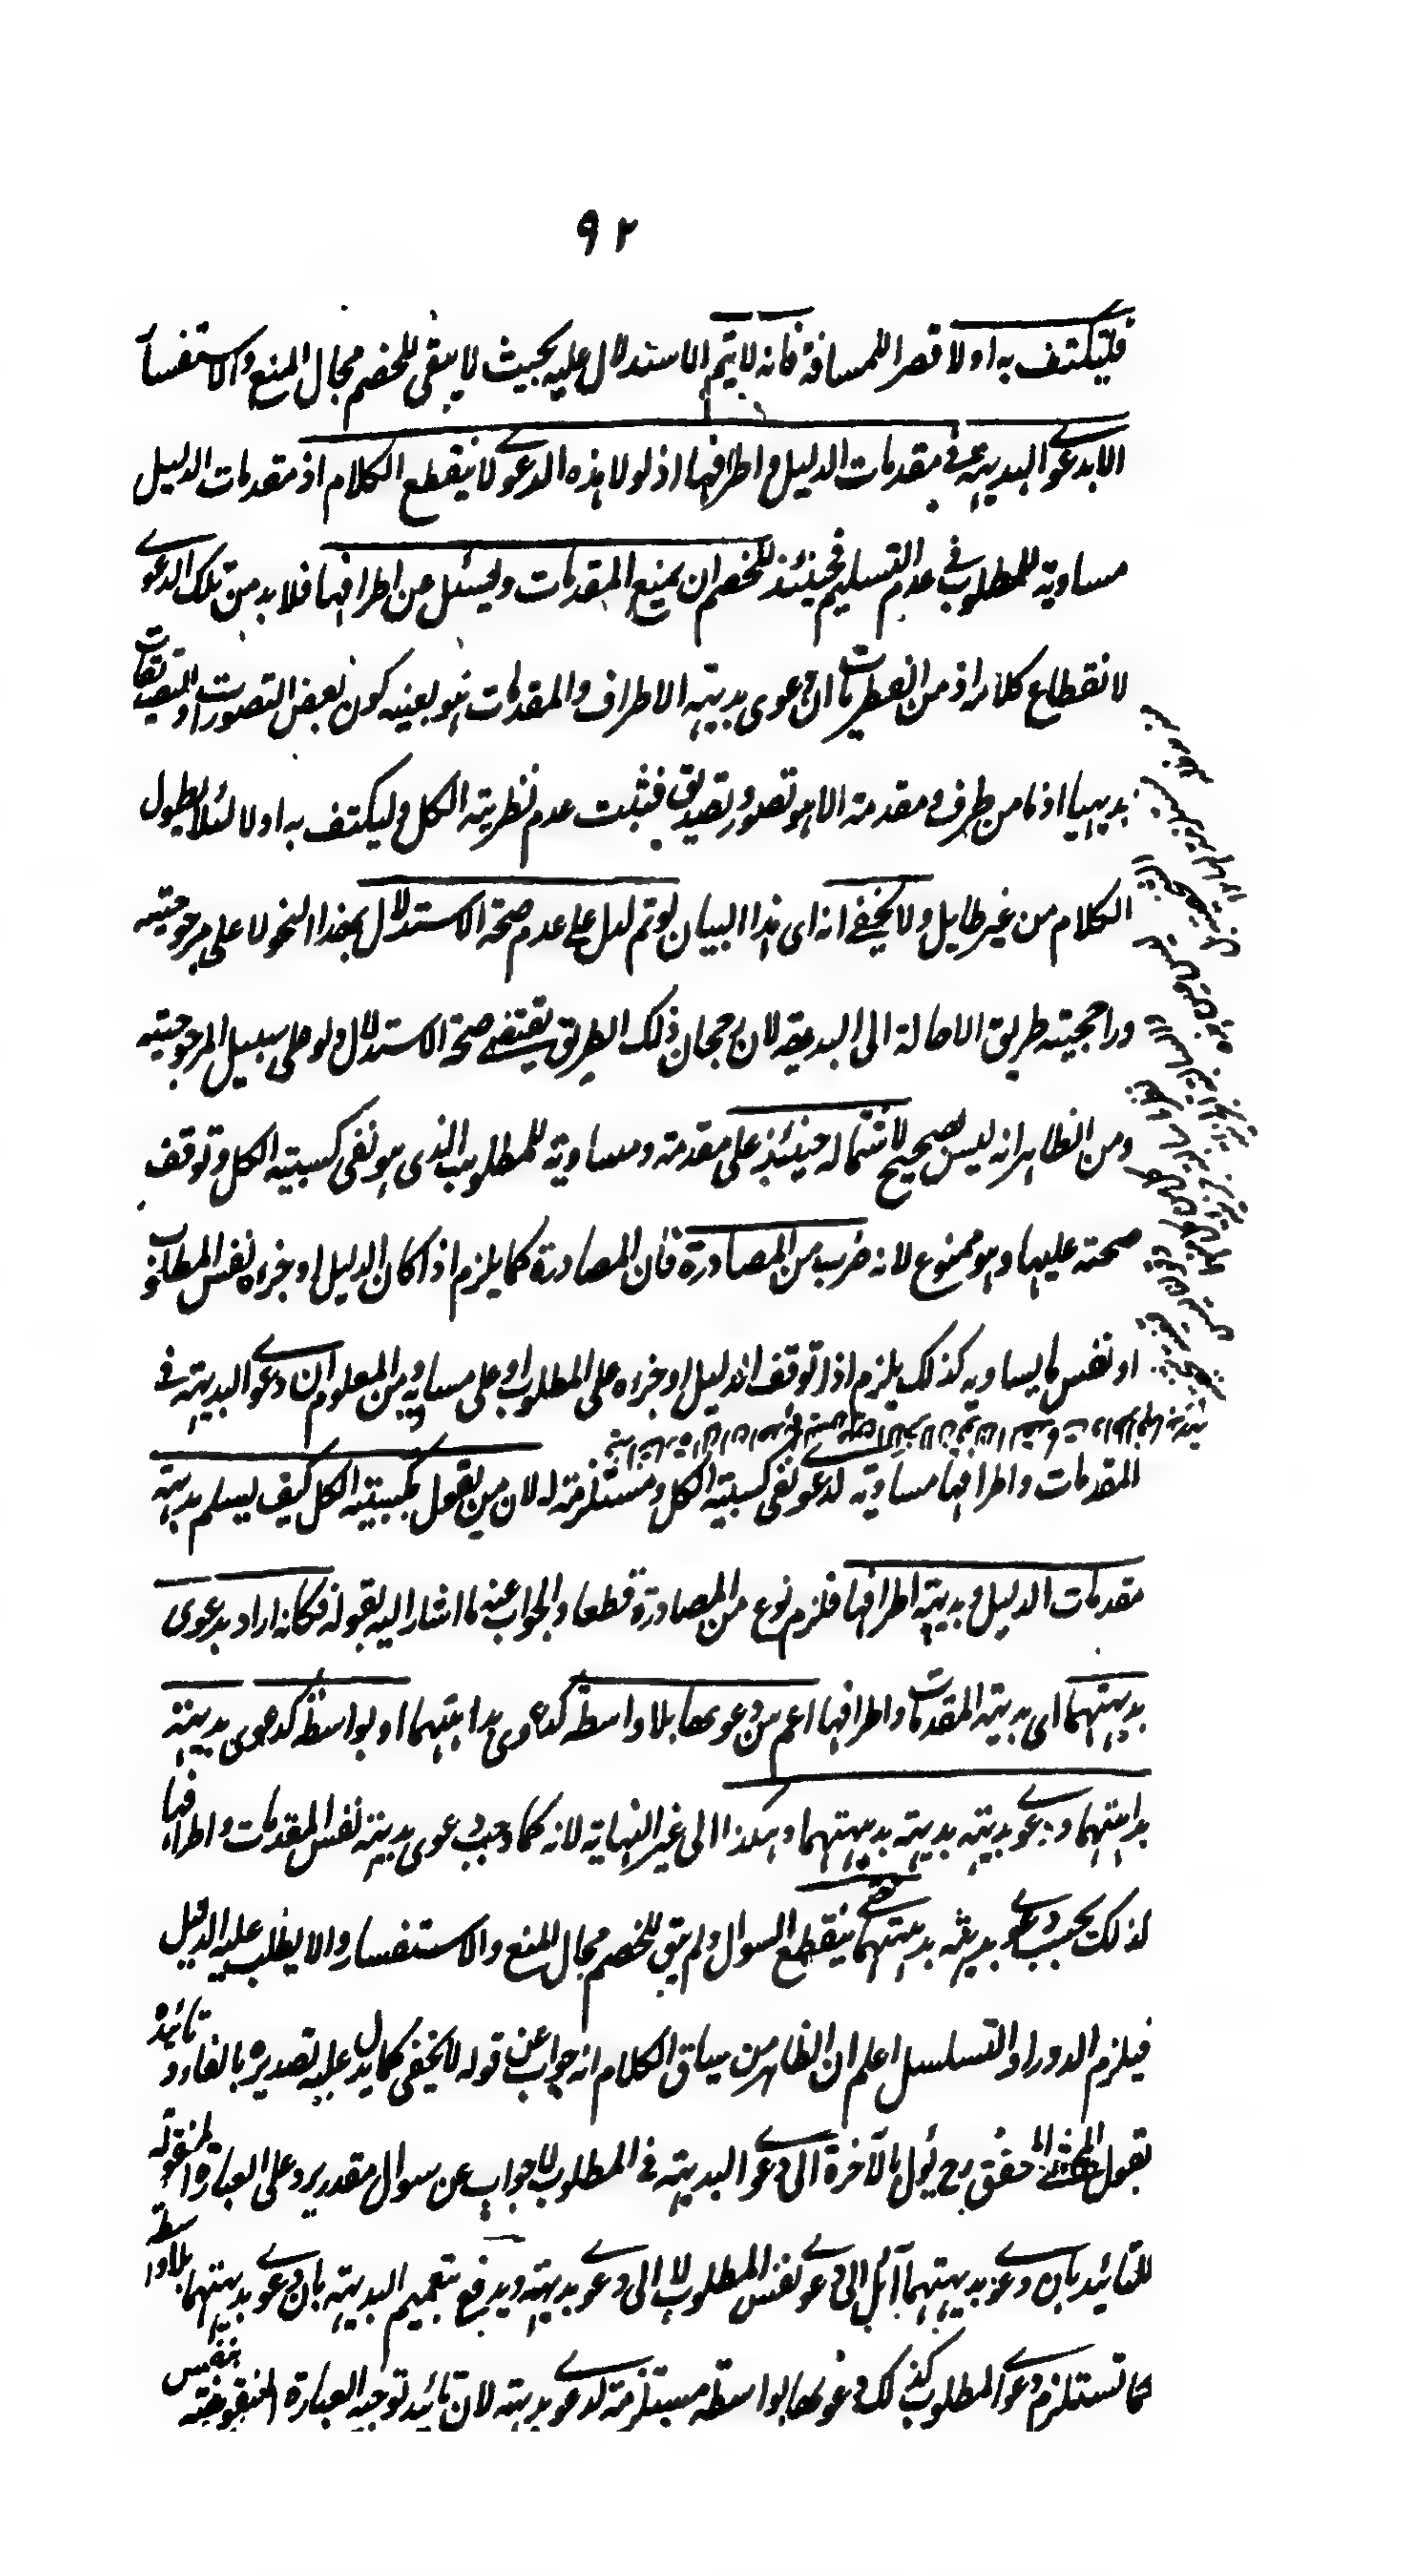 ٩٢
فليكتف به اولا قصرا للمسافة فانه لا يتم الاستدلال عليه بحيث لا يبقى للخصم مجال المنع والاستفسار
الا بدعوى البديهة فى مقدمات الدليل واطرافها اذ لولا هذه الدعوى لا ينقطع الكلام اذ مقدمات الدليل
مساوية للمطلوب فى عدم التسليم فحينئذ للخصم ان يمنع المقدمات ويسئل عن اطرافها فلا بد من تلك الدعوى
لانقطاع كلامه اذ من الفطريات ان دعوى بديهة الاطراف والمقدمات هو بعينه كون بعض التصورات او التصديقات
بديهيا اذ ما من طرف ومقدمة الا هو تصور وتصديق فثبت عدم نظرية الكل وليكتف به اولا لئلا يطول
الكلام من غير طايل ولا يخفى انه اى هذا البيان لو تم لدل على عدم صحة الاستدلال بهذا النحو لا على مرجوحيته
وراجحية طريق الاحالة الى البديهة لان رجحان ذلك الطريق يقتضى صحة الاستدلال ولو على سبيل المرجوحية
ومن الظاهر انه ليس بصحيح لاشتماله حينئذ على مقدمة ومساوية للمطلوب الذى هو نفى كسبية الكل وتوقف
صحته عليها وهو ممنوع لانه ضرب من المصادرة فان المصادرة كما يلزم اذا كان الدليل او جزءه نفس المطلوب
او نفس ما يساويه كذلك يلزم اذا توقف الدليل او جزءه على المطلوب او على مساويه ومن المعلوم ان دعوى البديهة فى
المقدمات واطرافها مساوية لدعوى نفى كسبية الكل ومستلزمة له لان من يقول بكسبية الكل كيف يسلم بديهة
مقدمات الدليل وبديهة اطرافها فلزم نوع من المصادرة قطعا والجواب عنه ما اشار اليه بقوله فكانه اراد بدعوى
بديهتهما اى بديهة المقدمات واطرافها اعم من دعوىها بلا واسطة كدعوى بداهتهما او بواسطة كدعوى بديهة
بداهتهما ودعوى بديهة بديهة بديهتهما وهكذا الى غير النهاية لانه كما وجب دعوى بديهة نفس المقدمات واطرافها
كذلك يجب دعوى بديهة بديهتهما حتى ينقطع السوال ولم يبق للخصم مجال المنع والاستفسار والا يطلب عليه الدليل
فيلزم الدور او التسلسل اعلم ان الظاهر من سياق الكلام انه جواب عن قوله لا يخفى كما يدل عليه تصديره بالفاء وتائيده
بقول المحشى المحقق رح يئول بالآخرة الى دعوى البديهة فى المطلوب لا جواب عن سوال مقدر يرد على العبارة المنقولة
للتائيد بان دعوى بديهتهما آئل الى دعوى نفس المطلوب لا الى دعوى بديهة ويدفع بتعميم البديهة بان دعوى بديهتهما بلا واسطة
كما تستلزم دعوى المطلوب كذلك دعوىها بواسطة مستلزمة لدعوى بديهة لان تائيد توجيه العبارة المنقوضة بنفس